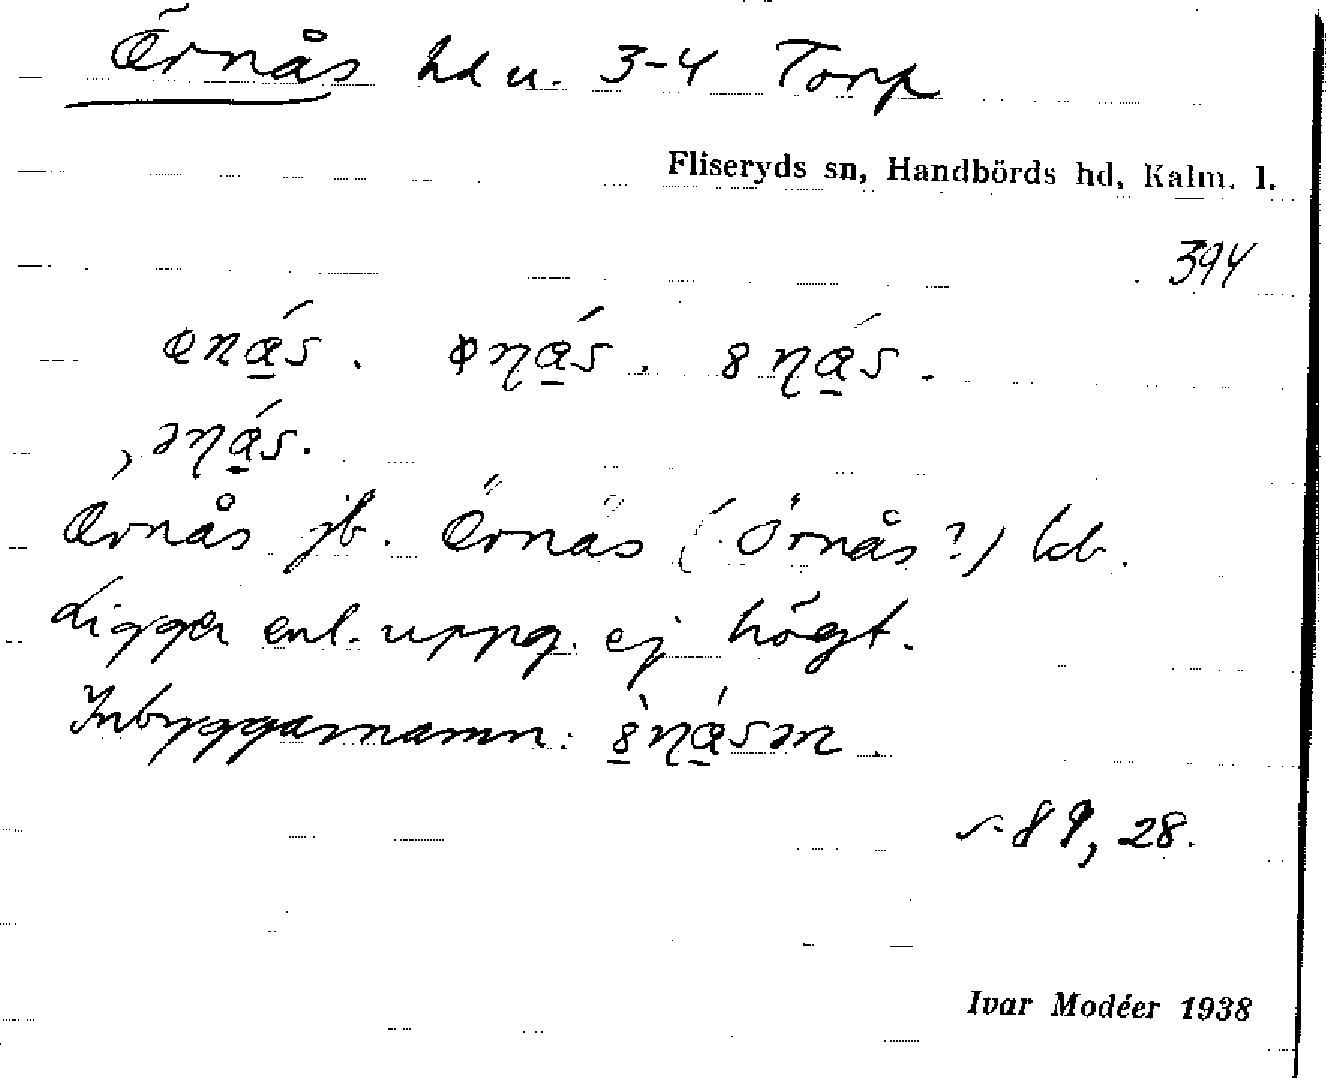 Örnås hd u. 3-4 Torp
Fliseryds sn, Handbörds hd, Kalm. l.
394
Örnås jb. Örnäs (Örnås?) kb.
Ligger enl. uppg. ej högt.
Inbyggarnamn:
s. 89, 28.
Ivar Modéer 1938